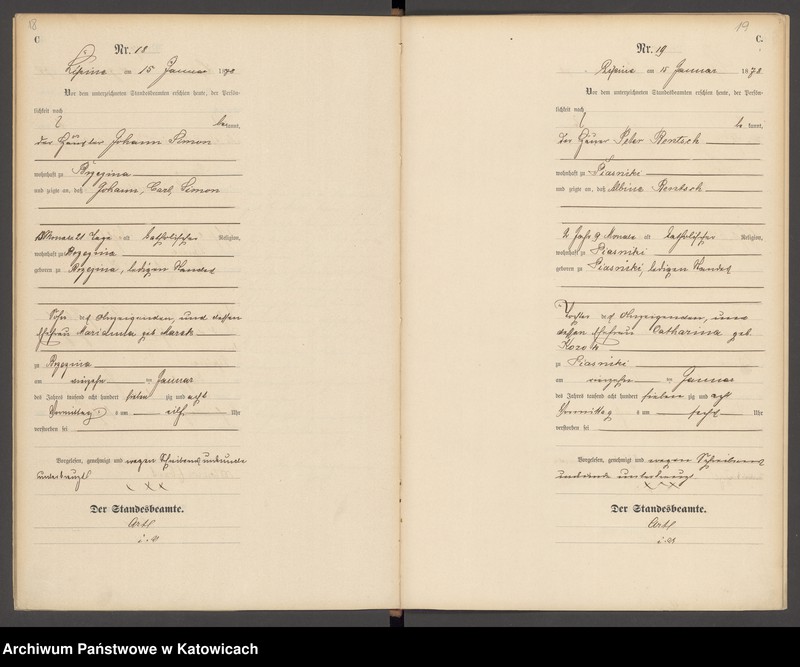 18
C
Nr. 18
Lipine am 15 Januar 1878
Vor dem unterzeichneten Standesbeamten erschien heute, der Persön-
lichkeit nach
bekannt,
der Häusler Johann Simon
wohnhaft zu Brzezina
und zeigte an, daß Johann, Carl Simon
Monate 21 Tage alt katholischer Religion,
wohnhaft zu Brzezina
geboren zu Brzezina, ledigen Standes
Sohn des Anzeigenden, und dessen
Ehefrau Marianna geb
zu Brzezina
am vierzehn ten Januar
des Jahres tausend acht hundert sieben zig und acht
Vormittag s um eilf Uhr
verstorben sei
Vorgelesen, genehmigt und wegen Schreibensunkunde
unterkreuzt
x x x
Der Standesbeamte.
19
C.
Nr. 19
Lipine am 15 Januar 1878
Vor dem unterzeichneten Standesbeamten erschien heute, der Persön-
lichkeit nach
be kannt,
der Häuer Peter Rentsch
wohnhaft zu Piasniki
und zeigte an, daß Albine Rentsch
2 Jahr 9 Monate alt katholischer Religion,
wohnhaft zu Piasniki
geboren zu Piasniki, ledigen Standes
Tochter des Anzeigenden, und
dessen Ehefrau Catharina geb.
zu Piasniki
am vierzehn ten Januar
des Jahres tausend acht hundert sieben zig und acht
Vormittag s um Uhr
verstorben sei
Vorgelesen, genehmigt und wegen Schreibens
unkunde unterkreuzt
x x x
Der Standesbeamte.
Archiwum Państwowe w Katowicach